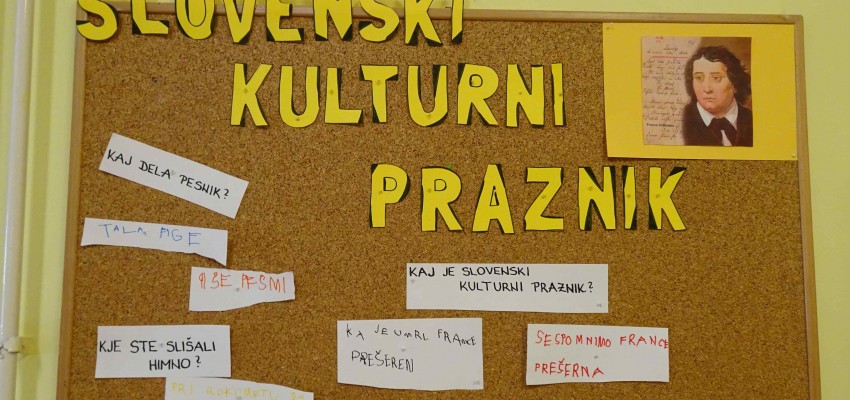 SLOVENSKI
KULTURNI
PRAZNIK
KAJ DELA PESNIK?
FIGE
KAJ JE SLOVENSKI
KULTURNI PRAZNIK?
KJE STE SLIŠALI
HIMNO?
KA JE UMRL FRANCE
PREŠEREN
SE SPOMNIMO FRANCE
PREŠERNA
PRI